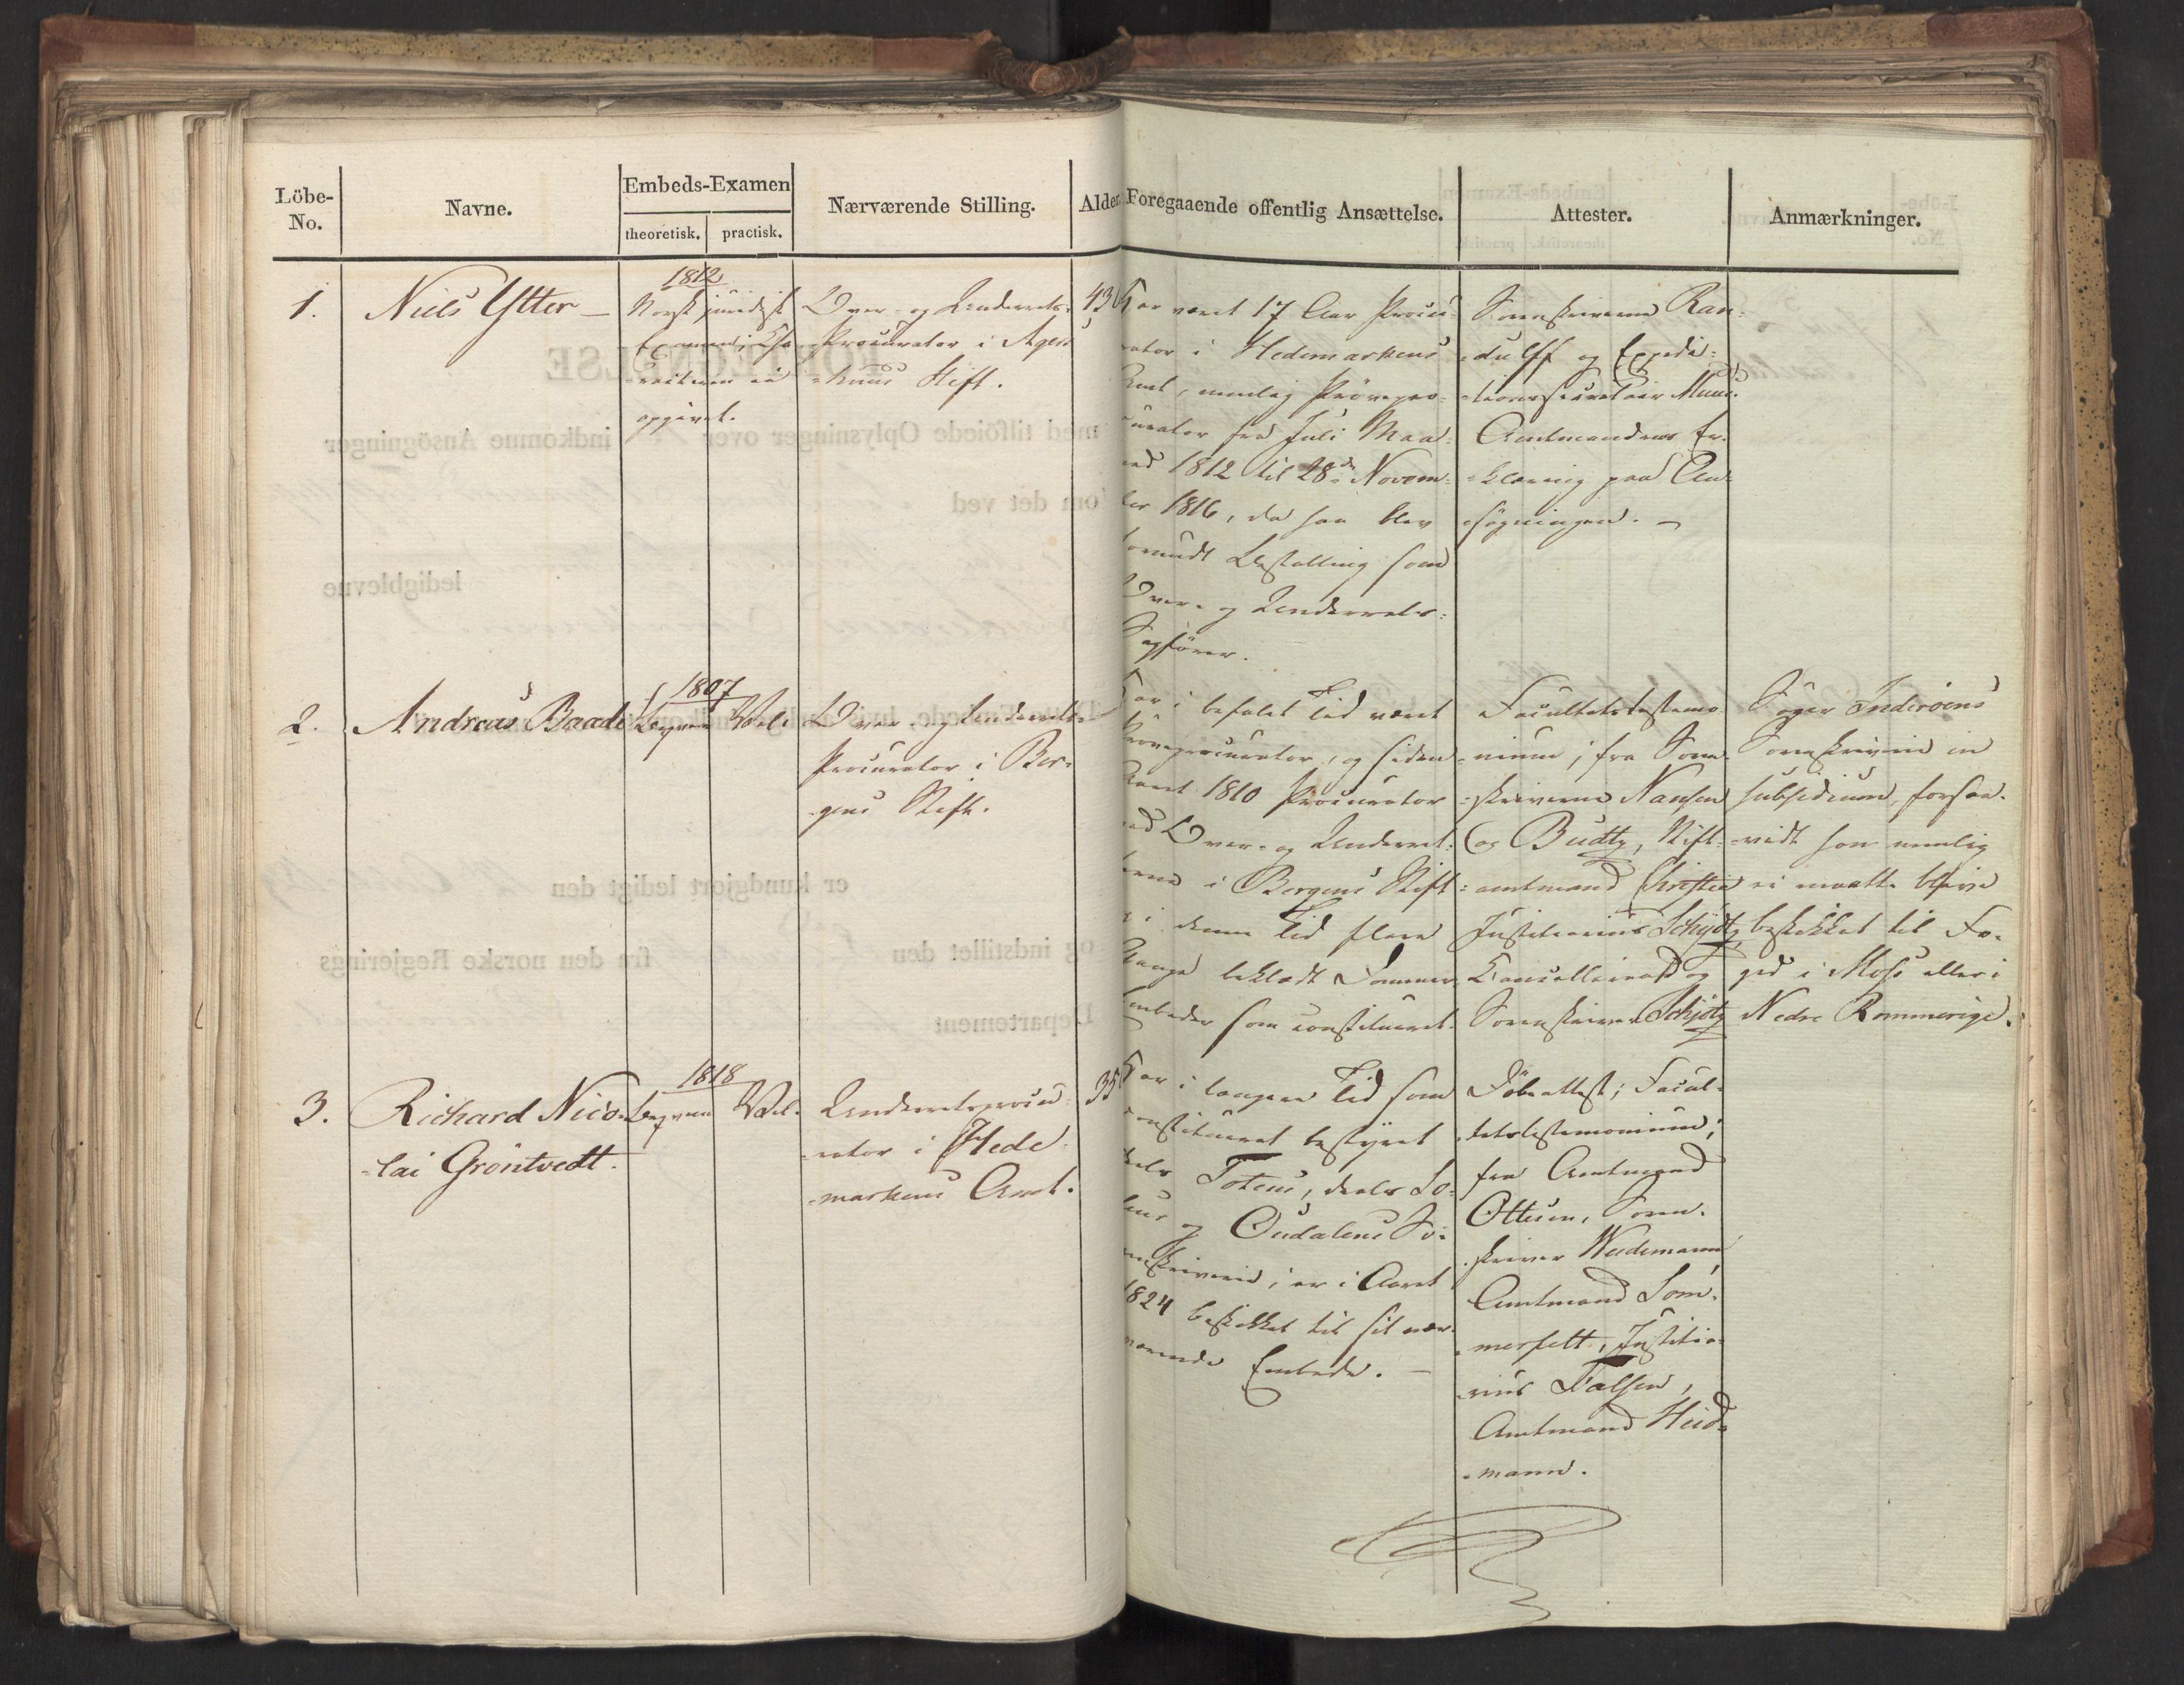 Löbe-
No.
Navne.
Embeds-Examen
theoretisk.
practisk.
Nærværende Stilling.
Alder.
Foregaaende offentlig Ansættelse.
Attester.
Anmærkninger.
1.
Niels Ytter
1812
Norsk juridisk
Examen; Cha-
rakteren ei
opgivet.
Over- og Underrets-
Procurator i Agers-
-huus Stift.
43
Har været 17 Aar Procu-
rator i Hedemarkens
Amt, nemlig Prøvepro-
curator fra Juli Maa-
ned 1812 til 28de Novem-
ber 1816, da han blev
forundt Bestalling som
Over- og Underrets-
Sagfører.
Sorenskriverne Ran-
-dulff og Expedi-
-tionssecretair Muus.
Amtmandens Er-
-klæring paa An-
-søgningen.
2.
Andreas Baade
1807
Laud.
Vel.
Over- og Underrets-
Procurator i Ber-
-gens Stift.
Har i befalet Tid været
Prøveprocurator, og siden
Aaret 1810 Procurator
ved Over- og Underret-
terne i Bergens Stift
i denne Tid flere
Gange beklædt Dommer
Embeder som constitueret.
Facultetstestimo-
-nium; fra Soren-
-skriverne Nansen
og Budtz, Stift-
-amtmand Christie
Justitiarius Schydtz
Cancelliraad og
Sorenskriver Schjøtz
Søger Inderøens
Sorenskriverie in
subsidium, forsaa-
-vidt han nemlig
ei maatte blive
beskikket til Fo-
ged i Moss eller i
Nedre Rommerige.
3.
Richard Nico-
-lai Gröntvedt.
1818
Vel.
Underretsprocu-
-rator i Hede-
-markens Amt.
35
Har i længere Tid som
constitueret bestyret
deels Totens, deels So-
lørs og Oudalens So-
renskriverie; er i Aaret
1824 beskikket til sit nær-
værende Embede.
Døbeattest; Facul-
-tetstestimonium;
fra Amtmand
Ottesen, Soren-
-skriver Weidemann
Amtmand Som-
-merfelt, Justitia-
-rius Falsen,
Amtmand Heid-
-mann.